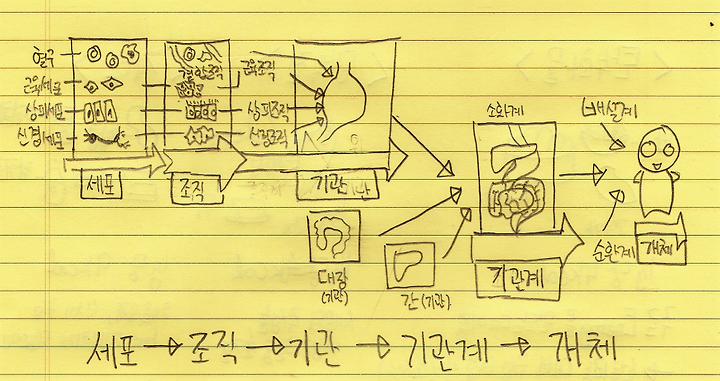 혈구
근육세포
상피세포
신경세포
결합조직
근육조직
상피조직
신경조직
세포
조직
기관
대장
(기관)
간(기관)
소화계
기관계
배설계
순환계
개체
세포→조직→기관→기관계→개체